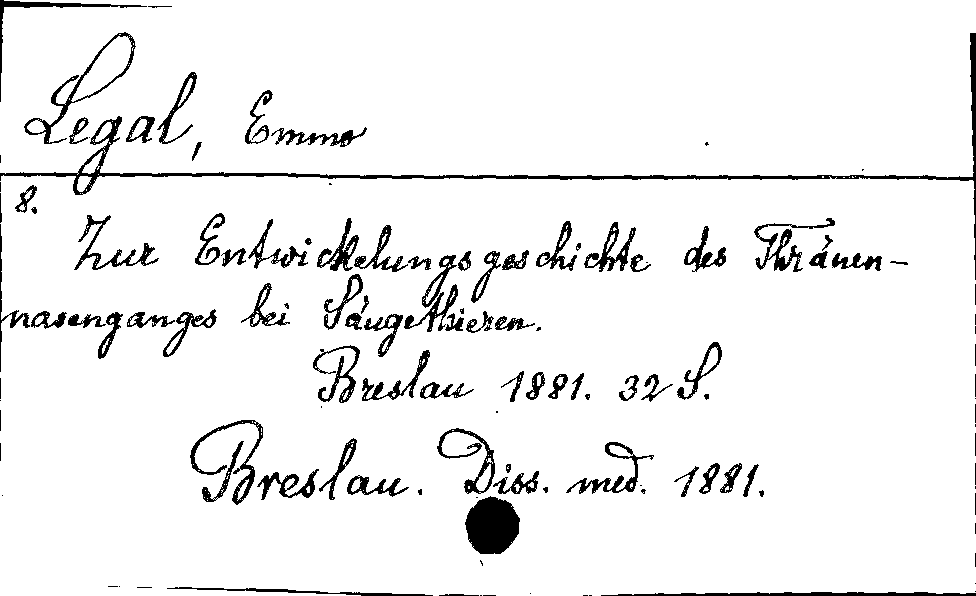 Legal, Emmo
8.
Zur Entwickelungsgeschichte des Thränen-
nasenganges bei Säugethieren.
Breslau 1881. 32 S.
Breslau. Diss. med. 1881.